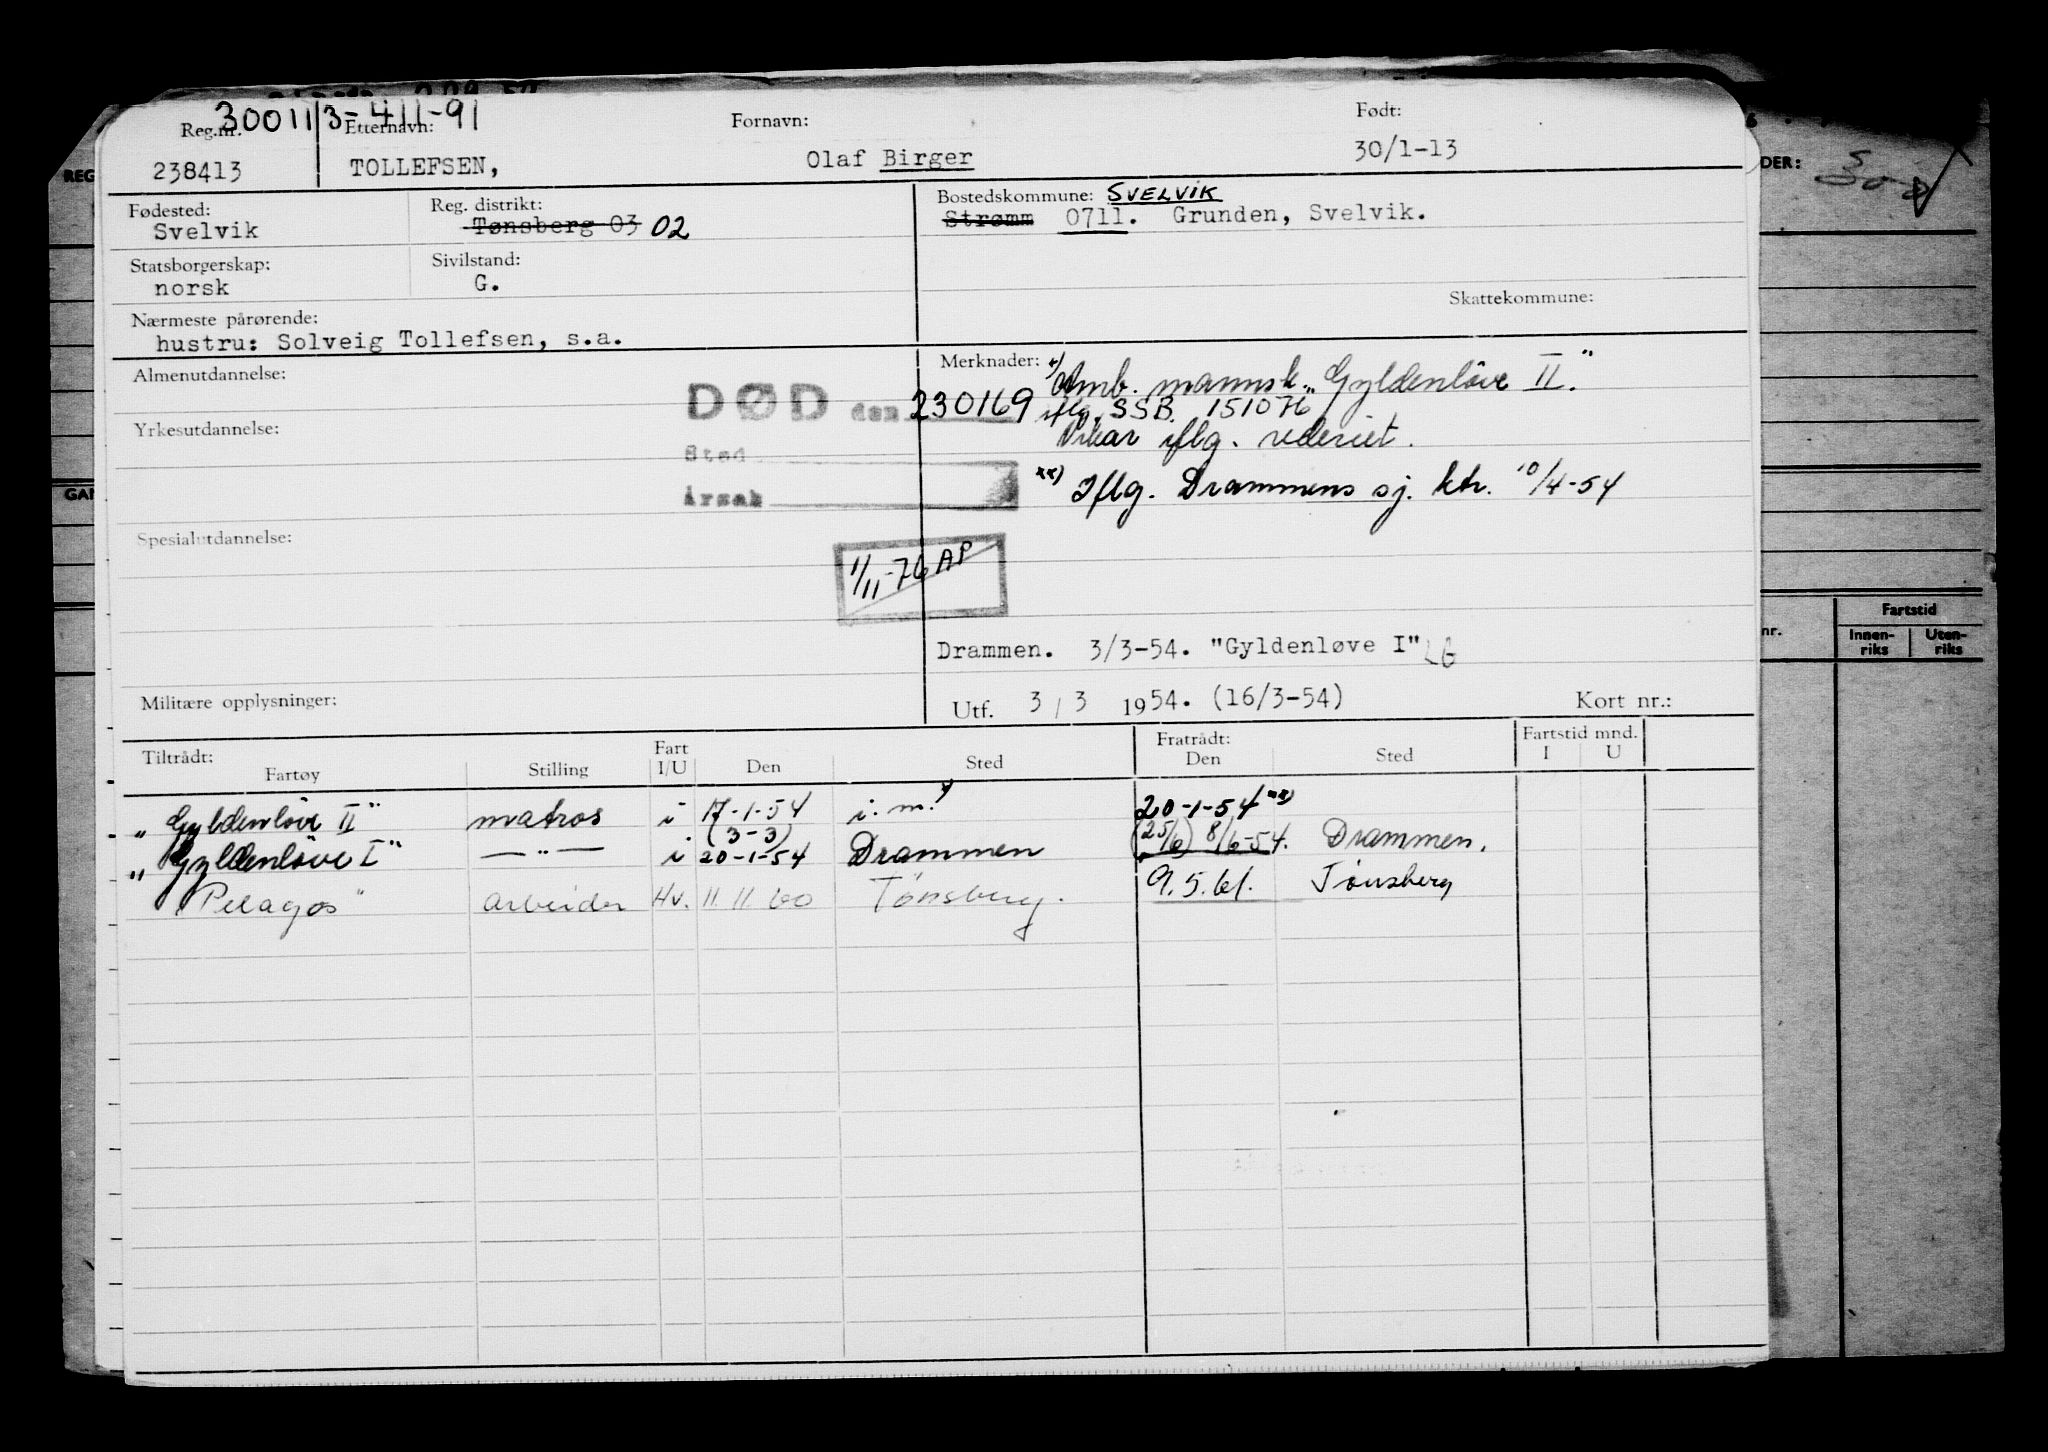 300113-411-91
Reg.nr. Etternavn: Fornavn: Født:
238413 TOLLEFSEN, Olaf Birger 30/1-13
Fødested: Reg. distrikt: Bostedskommune: SVELVIK
Svelvik Tønsberg 03 02 Strømm 0711. Grunden, Svelvik.
Statsborgerskap: Sivilstand:
norsk G.
Skattekommune:
Nærmeste pårørende:
hustru: Solveig Tollefsen, s.a.
Almenutdannelse: Merknader: x) Omb. mannsk. "Gyldenløve II"
DØD den 230169 iflg. SSB. 151076
Yrkesutdannelse: Vikar iflg. rederiet.
Sted
xx) Iflg. Drammens sj. ktr. 10/4-54
Årsak
Spesialutdannelse:
1/11-76 AP
Drammen. 3/3-54. "Gyldenløve I" LG
Militære opplysninger: Utf. 3/3 1954. (16/3-54) Kort nr.:
Tiltrådt: Fart Fratrådt: Fartstid mnd.
Fartøy Stilling I/U Den Sted Den Sted I U
"Gyldenløve II" matros i 17-1-54 i.m. x) 20-1-54 xx)
(3-3) (25/6) 8/6-54. Drammen.
"Gyldenløve I" —"— i 20-1-54 Drammen
"Pelagos" arbeider Hv. 11 11 60 Tønsberg. 9.5.61. Tønsberg
REG
GAN
DER:
nr.
Fartstid
Innen-riks Uten-riks